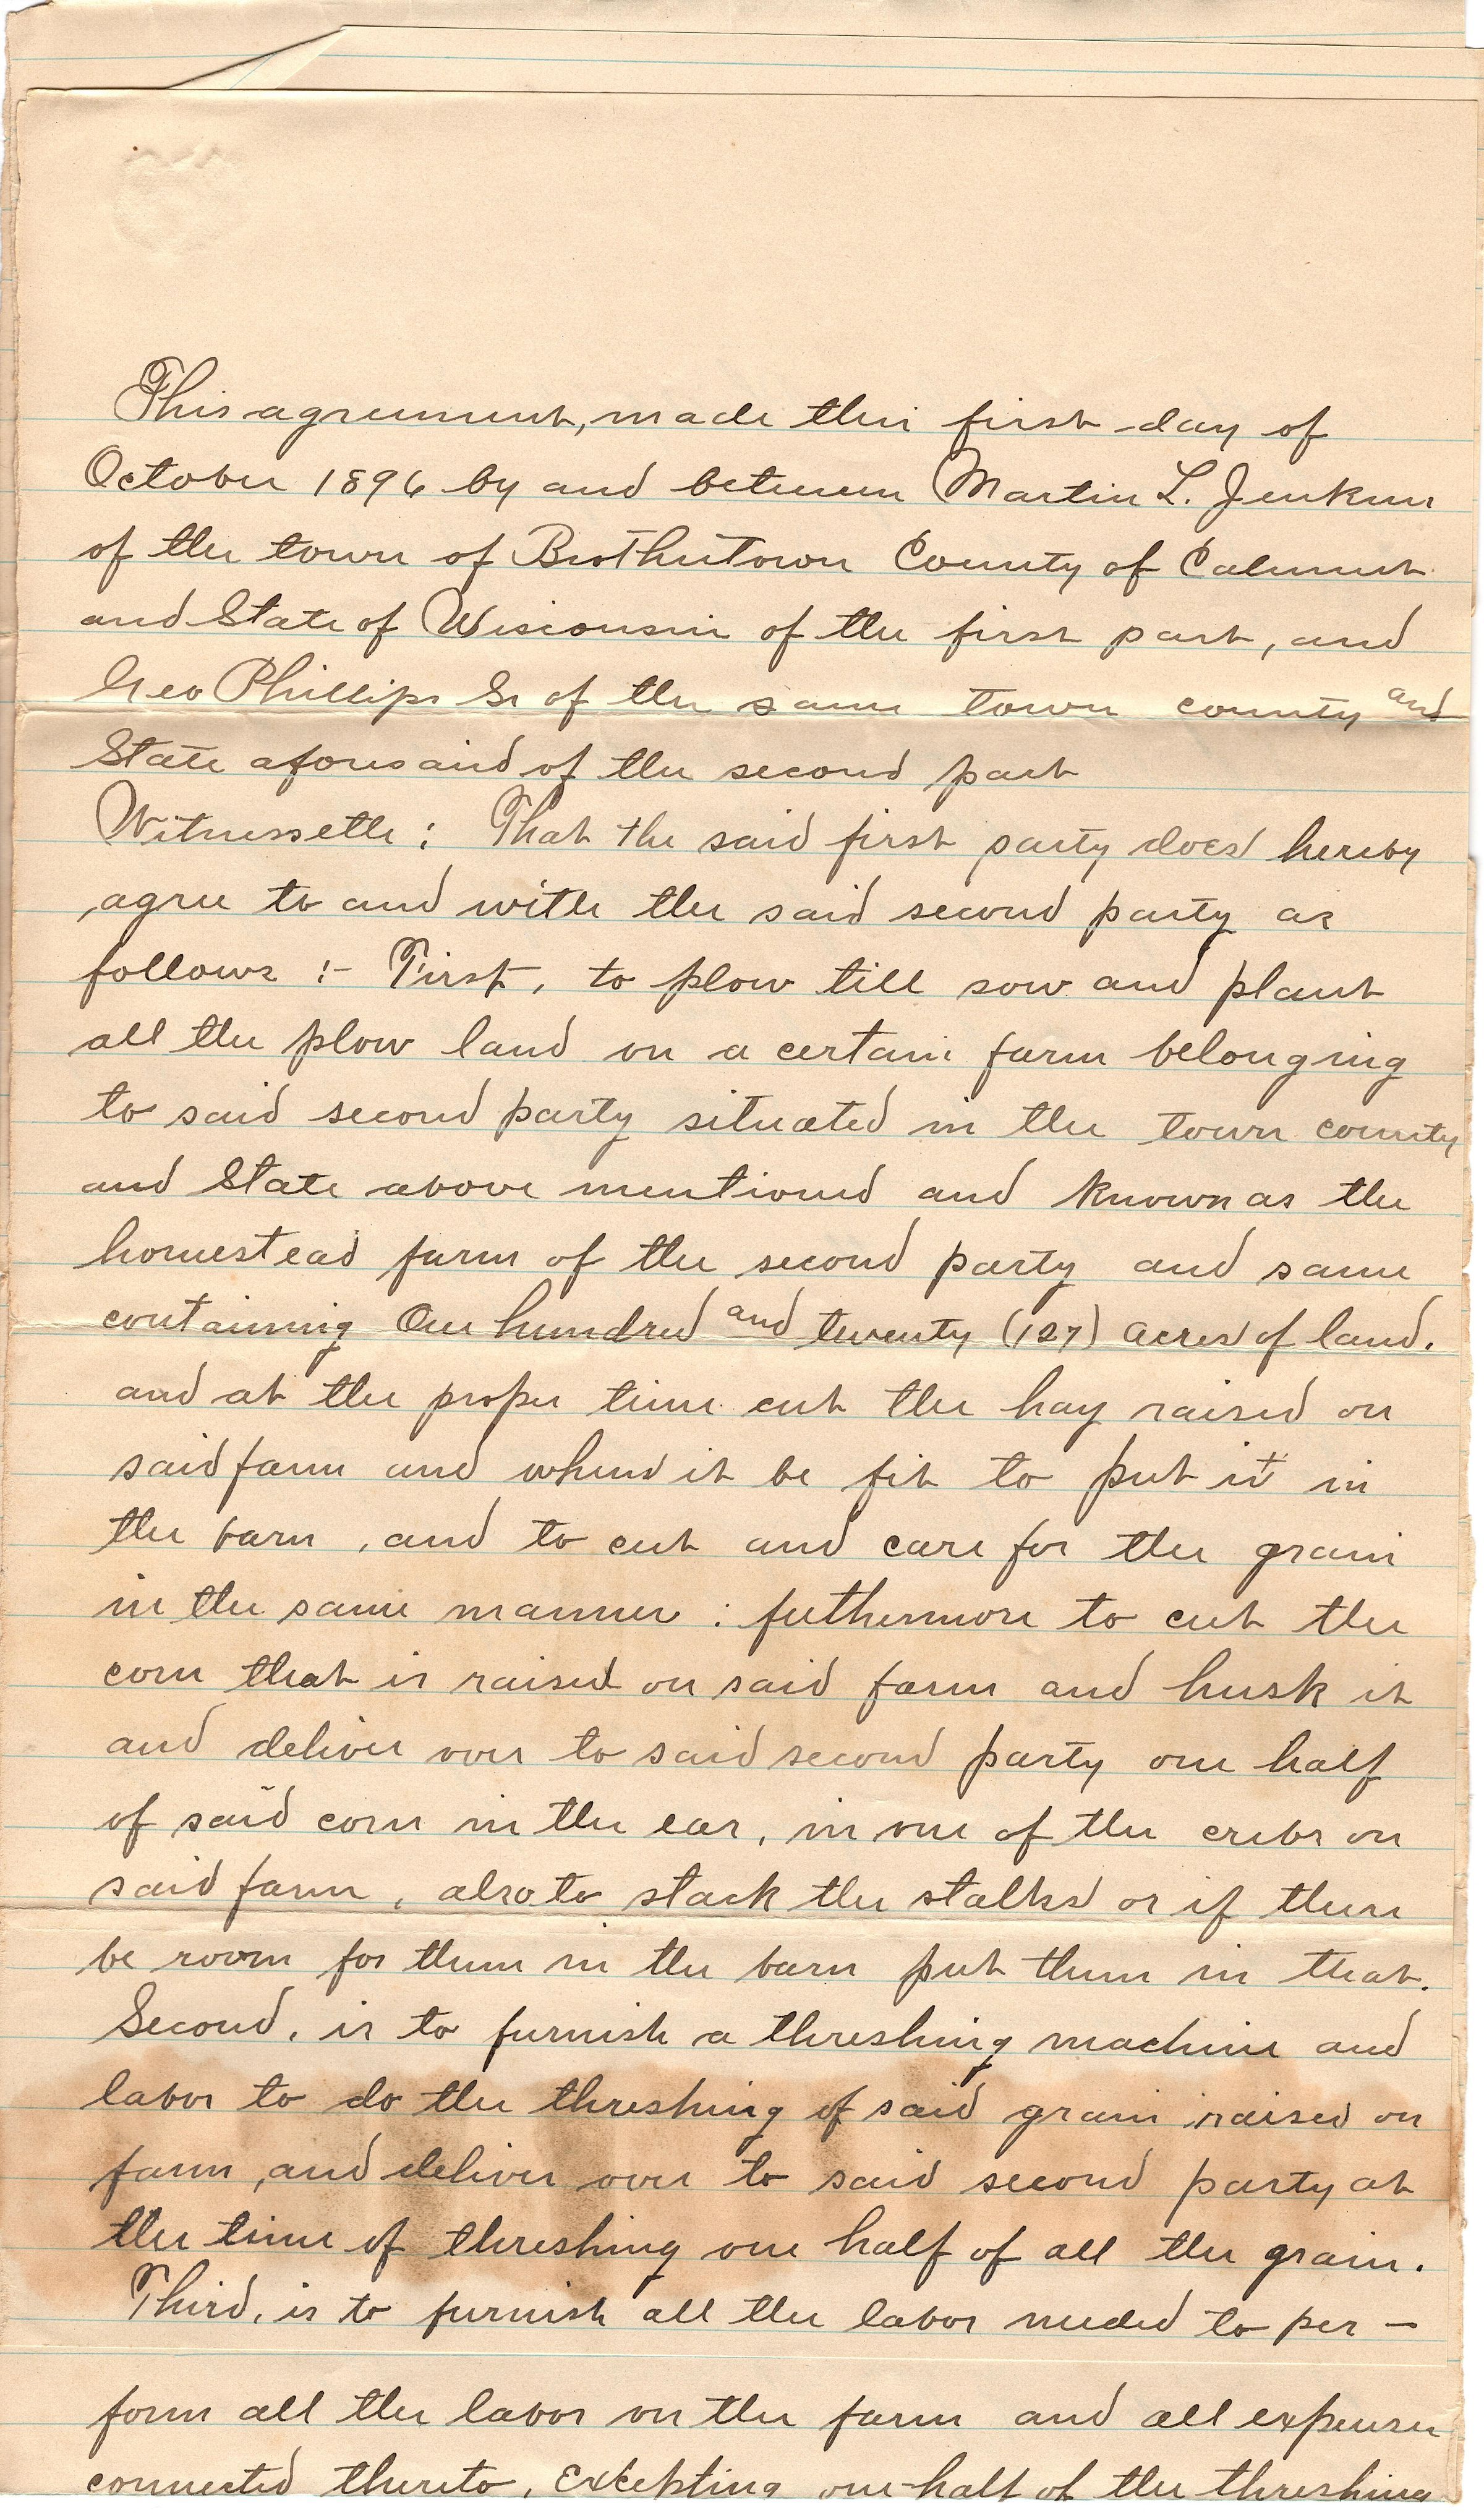 This agreement, made this first day of
October 1896 by and between Martin L. Jenkins
of the town of Brothertown County of Calumet
and State of Wisconsin of the first part, and
Geo Phillips Sr of the same town county and
State aforesaid of the second part
Witnesseth : That the said first party does hereby
agree to and with the said second party as
follows :- First, to plow till sow and plant
all the plow land on a certain farm belonging
to said second party situated in the town county
and State above mentioned and known as the
homestead farm of the second party and same
containing One hundred and twenty (127) acres of land.
and at the proper time cut the hay raised on
said farm and when it be fit to put it in
the barn , and to cut and care for the grain
in the same manner : futhermore to cut the
corn that is raised on said farm and husk it
and deliver over to said second party one half
of said corn in the ear, in one of the cribs on
said farm , also to stack the stalks or if there
be room for them in the barn put them in that.
Second, is to furnish a threshing machine and
labor to do the threshing of said grain raised on
farm , and deliver over to said second party at
the time of threshing one half of all the grain.
Third, is to furnish all the labor needed to per -
form all the labor on the farm and all expenses
connected thereto, Excepting one-half of the threshing